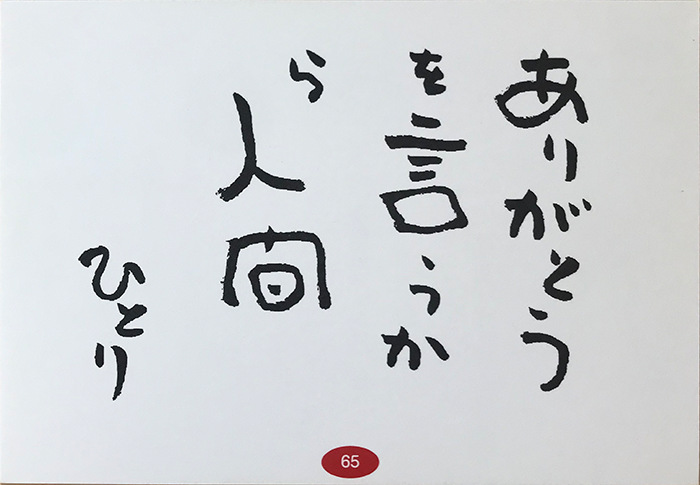 ありがとう
を言うか
ら人間
ひとり
65